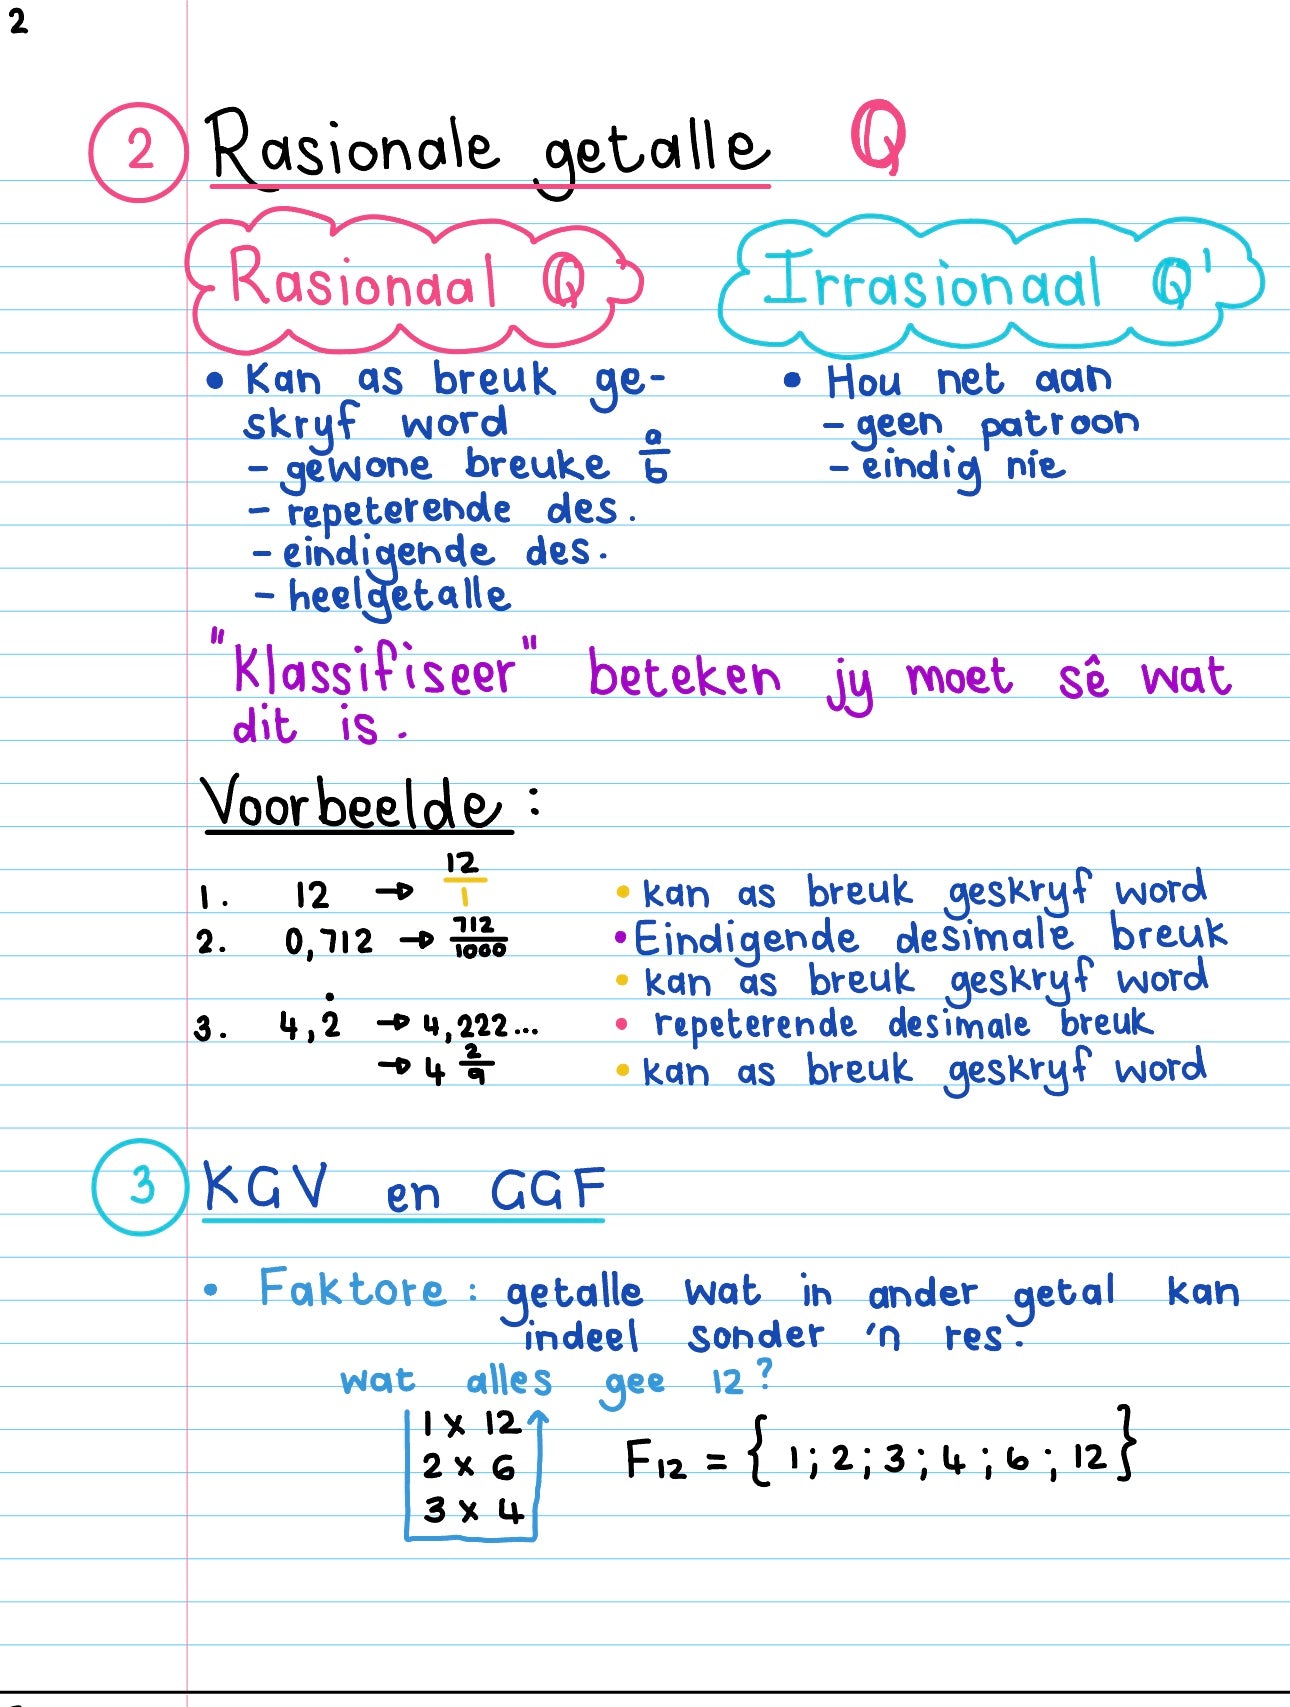 2
2 Rasionale getalle ℚ
Rasionaal ℚ
Irrasionaal ℚ'
• Kan as breuk ge-
skryf word
- gewone breuke a/b
- repeterende des.
- eindigende des.
- heelgetalle
• Hou net aan
- geen patroon
- eindig nie
"Klassifiseer" beteken jy moet sê wat
dit is.
Voorbeelde:
1. 12 → 12/1 • kan as breuk geskryf word
2. 0,712 → 712/1000 • Eindigende desimale breuk
• kan as breuk geskryf word
3. 4,2̇ → 4,222... • repeterende desimale breuk
→ 4 2/9 • kan as breuk geskryf word
3 KGV en GGF
• Faktore: getalle wat in ander getal kan
indeel sonder 'n res.
wat alles gee 12?
1 x 12
2 x 6
3 x 4
F₁₂ = { 1; 2; 3; 4; 6; 12}